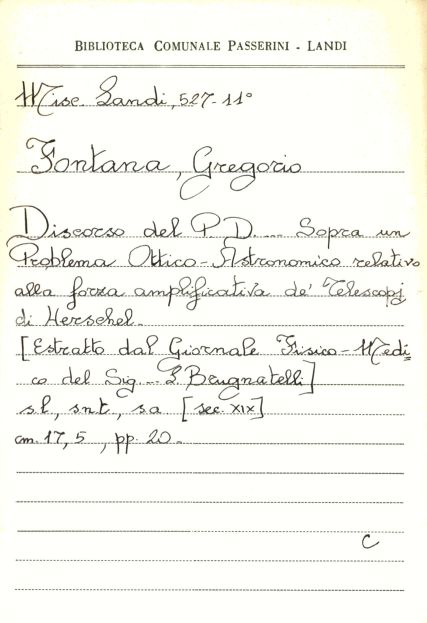 BIBLIOTECA COMUNALE PASSERINI - LANDI
Misc. Landi, 527-11°
Fontana, Gregorio
Discorso del P. D. ... Sopra un
Problema Ottico-Astronomico relativo
alla forza amplificativa de' Telescopj
di Herschel.
[Estratto dal Giornale Fisico-Medi=
co del Sig. ... Brugnatelli]
s.l., s.n.t., s.a. [sec. XIX]
cm. 17,5, pp. 20.
C